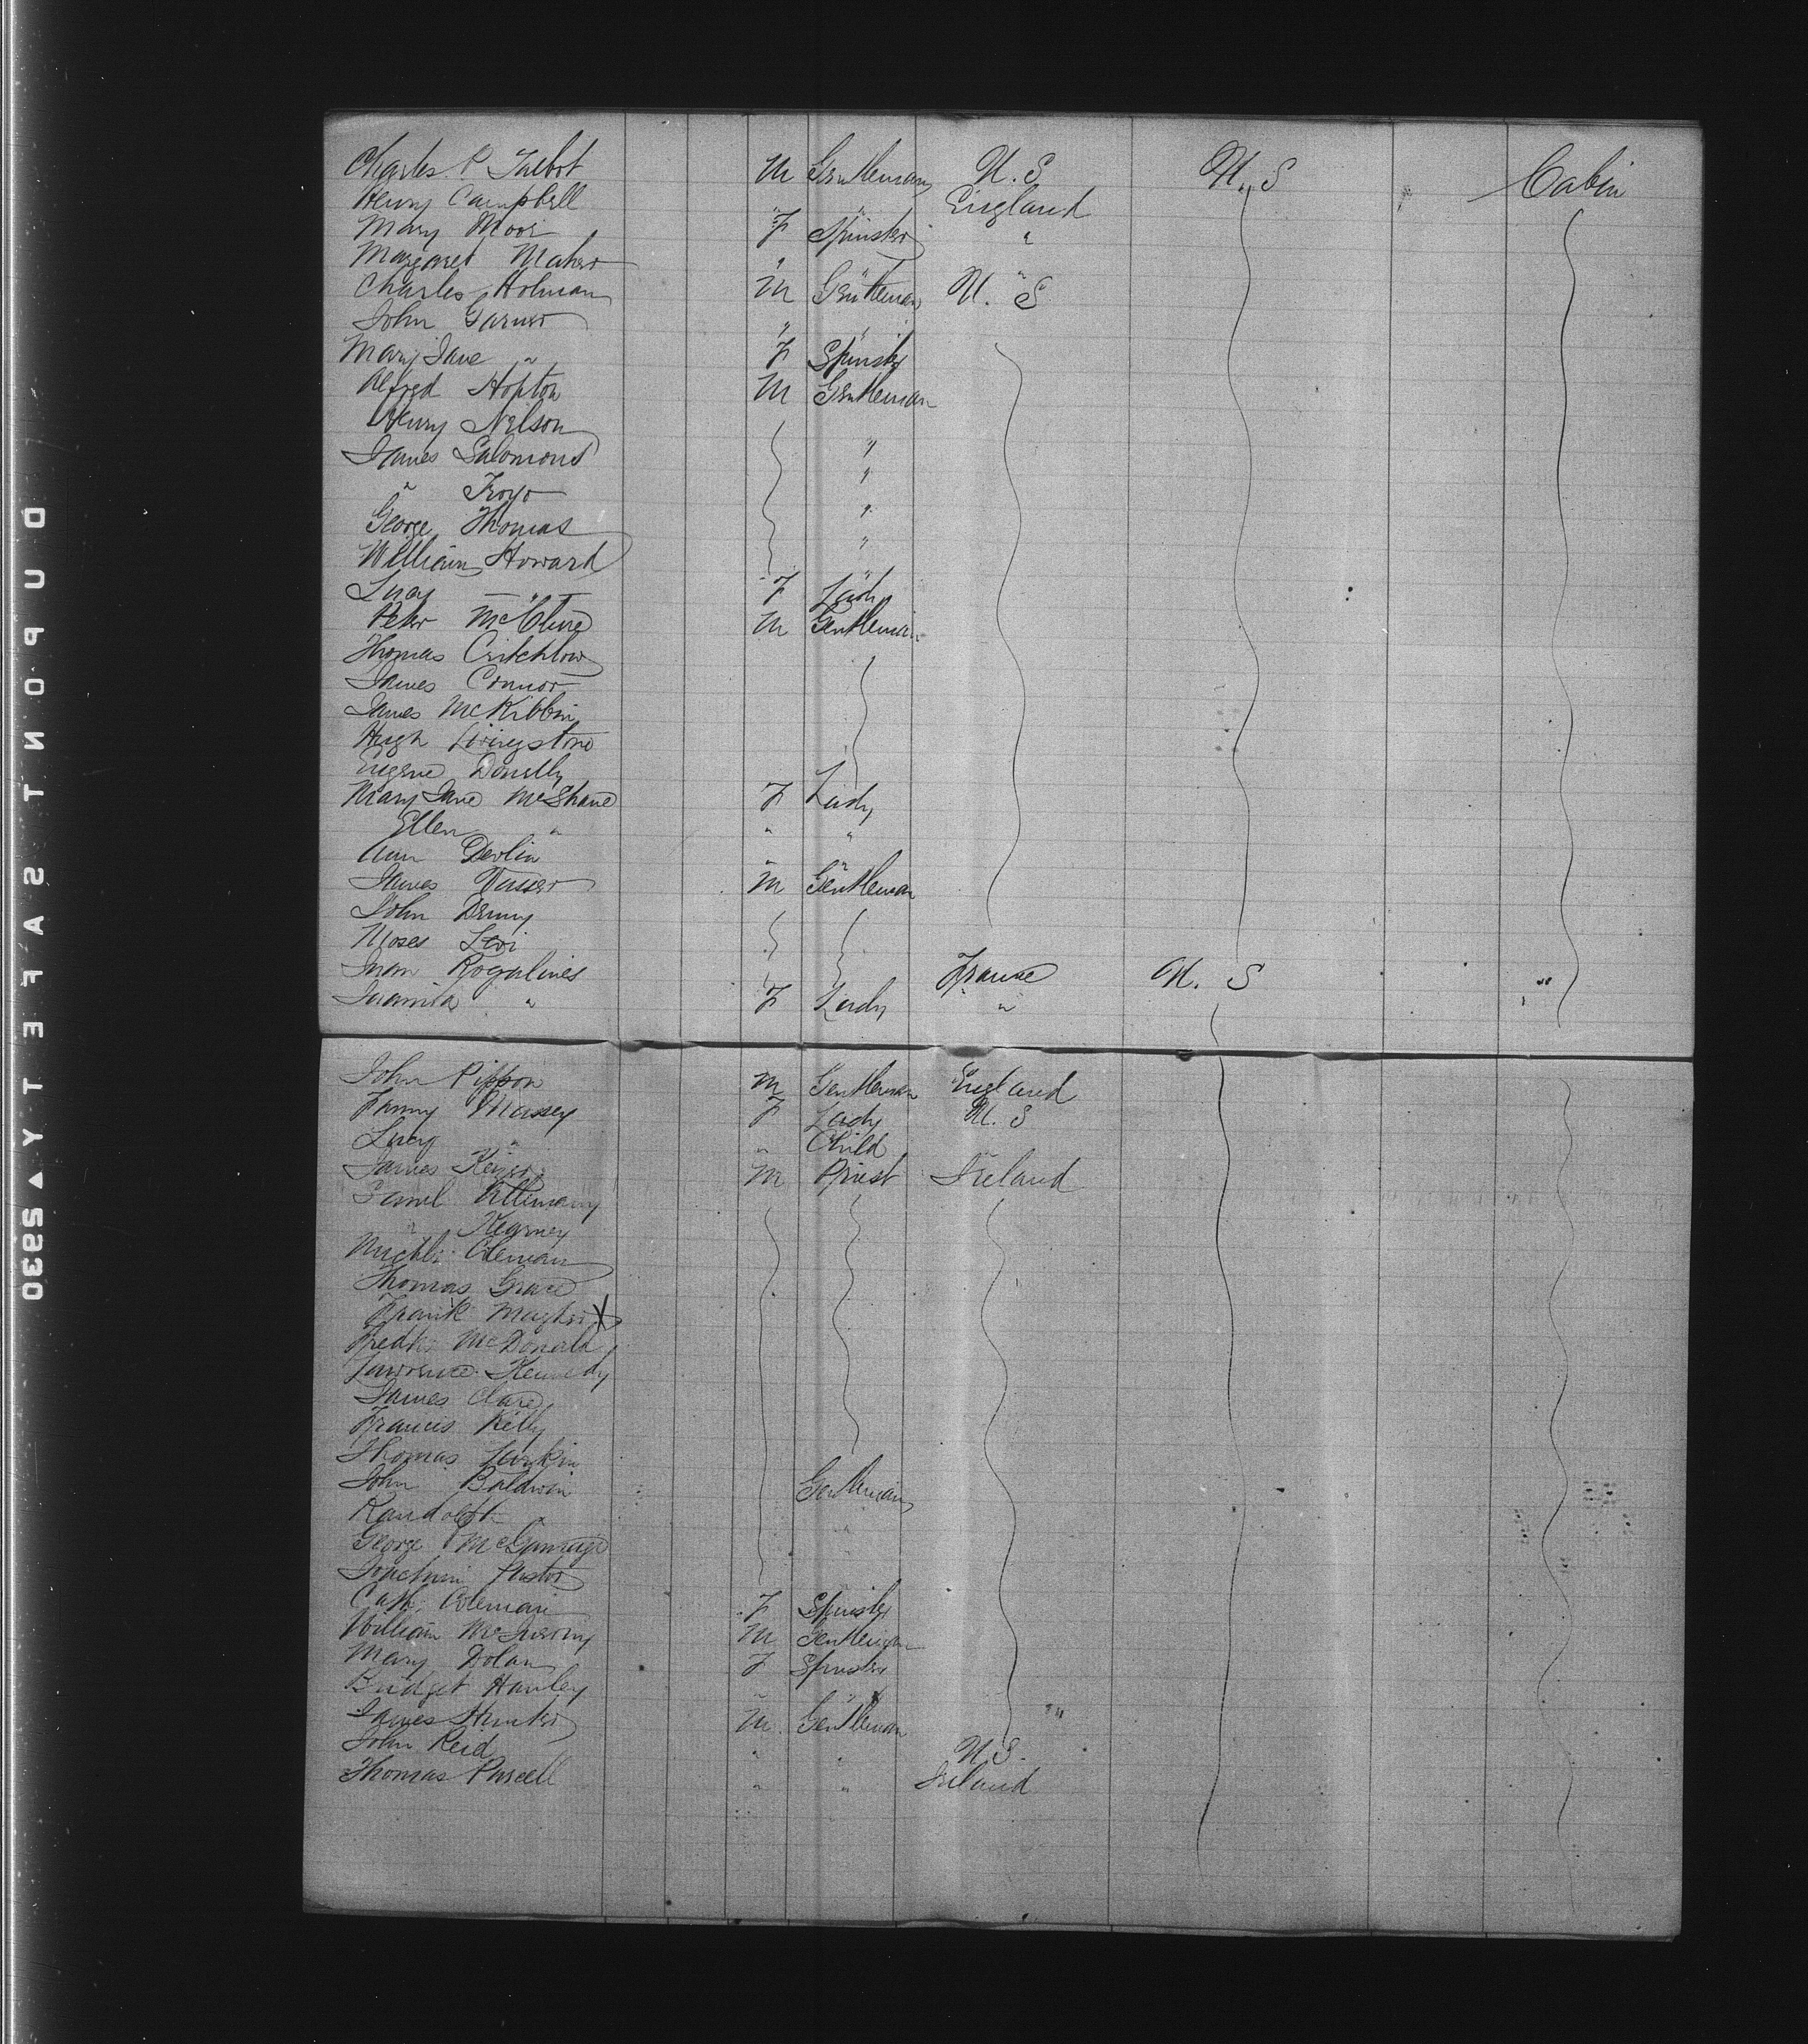 Charles P Talbot M Gentleman U.S U.S Cabin
Henry Campbell " " England
Mary Moor F Spinster "
Margaret Maher " " "
Charles Holman M Gentleman U.S
John Garner " "
Mary Jane " F Spinster
Alfred Hopton M Gentleman
Henry Nelson "
James Salomons "
" Troyo "
George Thomas "
William Howard "
Lucy " F Lady
Peter McClure M Gentleman
Thomas Critchlow
James Connor
James McKibbin
Hugh Livingstone
Eugene Donelly
Mary Jane McShane F Lady
Ellen " " "
Ann Devlin " "
James M Gentleman
John Denny
Moses Levi
Juan Rogalines France U.S "
Juanita " F Lady "
John Pippon M Gentleman England
Fanny Massey F Lady U.S
Lucy " " Child "
James M Priest Ireland
" Kearney
Coleman
Thomas Grace
Frank Magher X
Fredk McDonald
Lawrence Kennedy
James Clare
Francis Kelly
Thomas Larkin
John Baldwin Gentleman
Randolph "
George
Joachim Pastor
Cath. Coleman F Spinster
William McInerny M Gentleman
Mary Dolan F Spinster
Bridget Hanley " "
James Hunter M Gentleman "
John Reid " " U.S.
Thomas Purcell " " Ireland
DUPONT SAFETY 5930